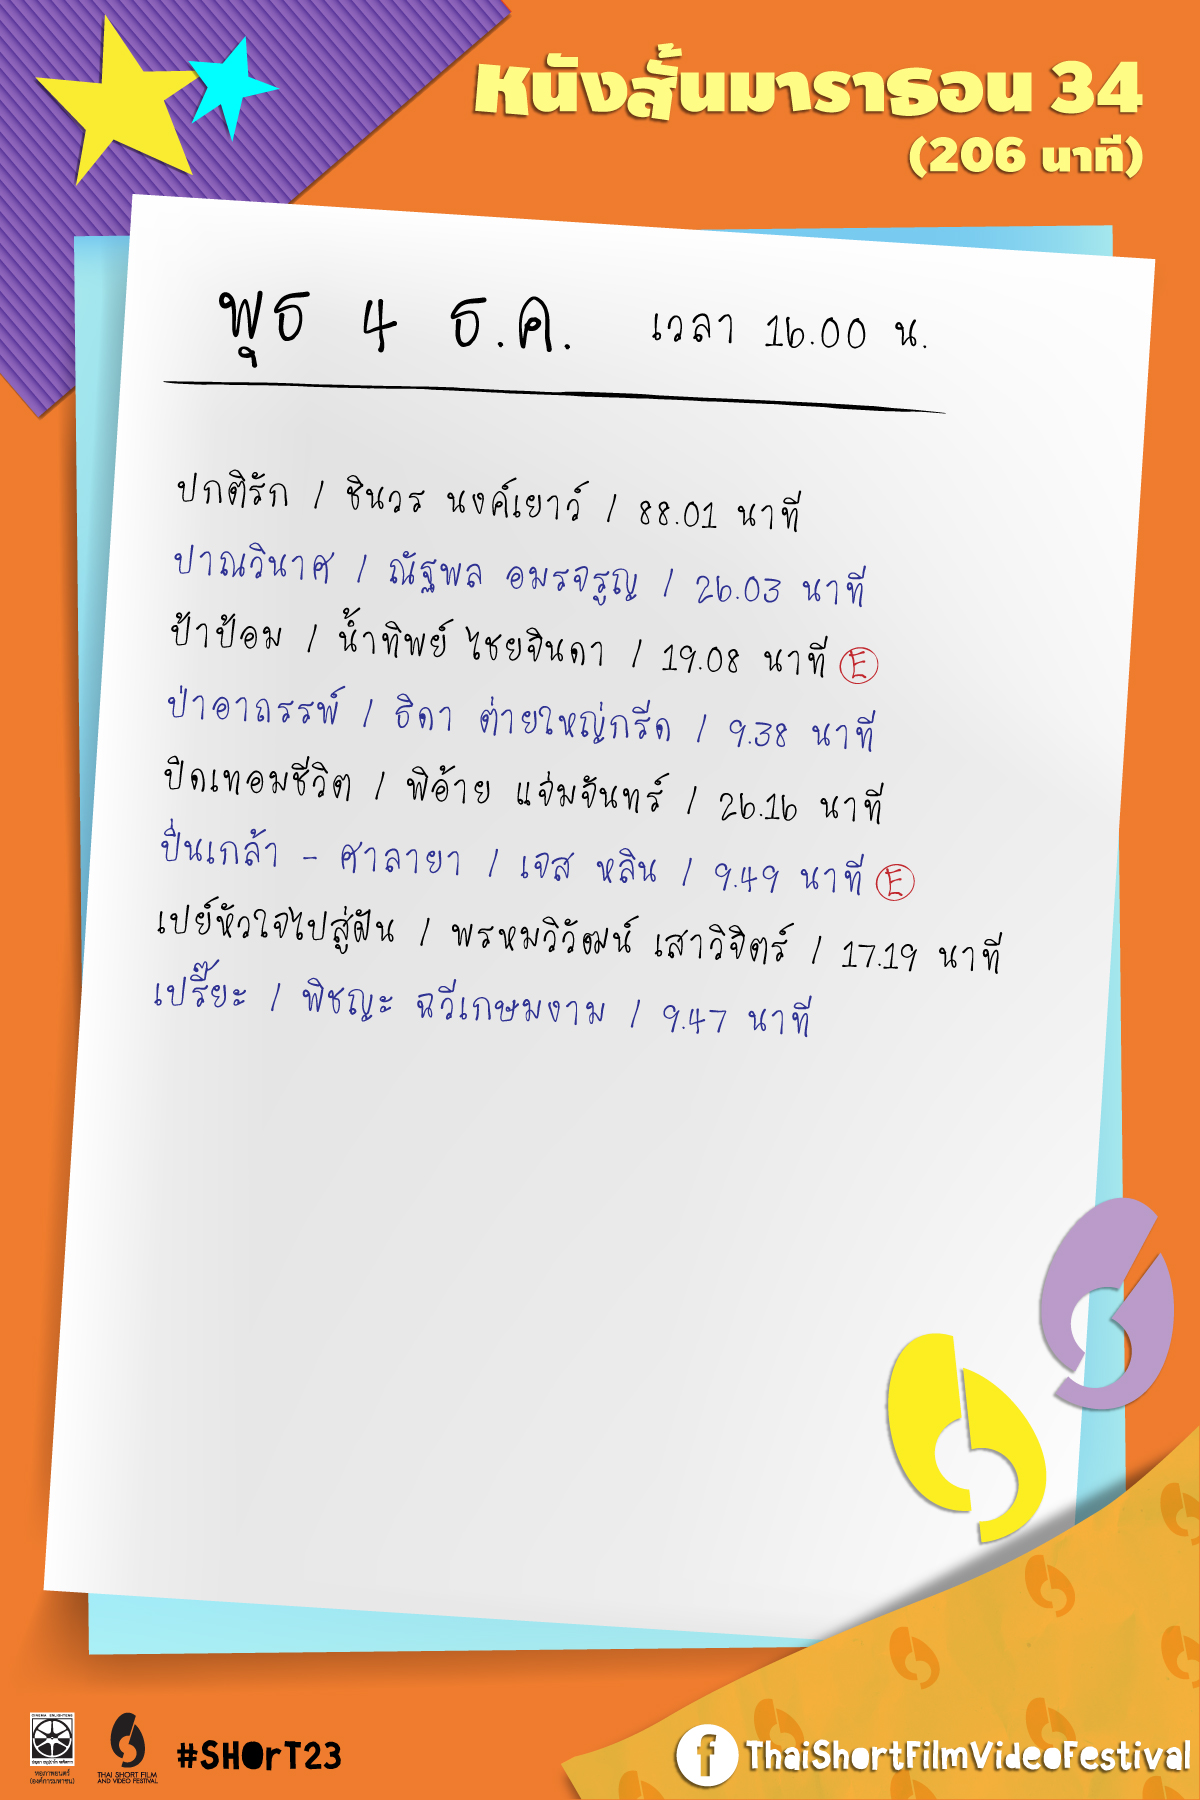 หนังสั้นมาราธอน 34
(206 นาที)
พุธ 4 ธ.ค. เวลา 16.00 น.
ปกติรัก / ชินวร นงค์เยาว์ / 88.01 นาที
ปาณวินาศ / ณัฐพล อมรจรูญ / 26.03 นาที
ป้าป้อม / น้ำทิพย์ ไชยจินดา / 19.08 นาที Ⓔ
ป่าอาถรรพ์ / ธิดา ต่ายใหญ่กรีด / 9.38 นาที
ปิดเทอมชีวิต / พิอ้าย แจ่มจันทร์ / 26.16 นาที
ปิ่นเกล้า - ศาลายา / เจส หลิน / 9.49 นาที Ⓔ
เปย์หัวใจไปสู่ฝัน / พรหมวิวัฒน์ เสาวิจิตร์ / 17.19 นาที
เปรี๊ยะ / พิชญะ ฉวีเกษมงาม / 9.47 นาที
หอภาพยนตร์
(องค์การมหาชน)
THAI SHORT FILM
AND VIDEO FESTIVAL
#SHOrT23
f ThaiShortFilmVideoFestival